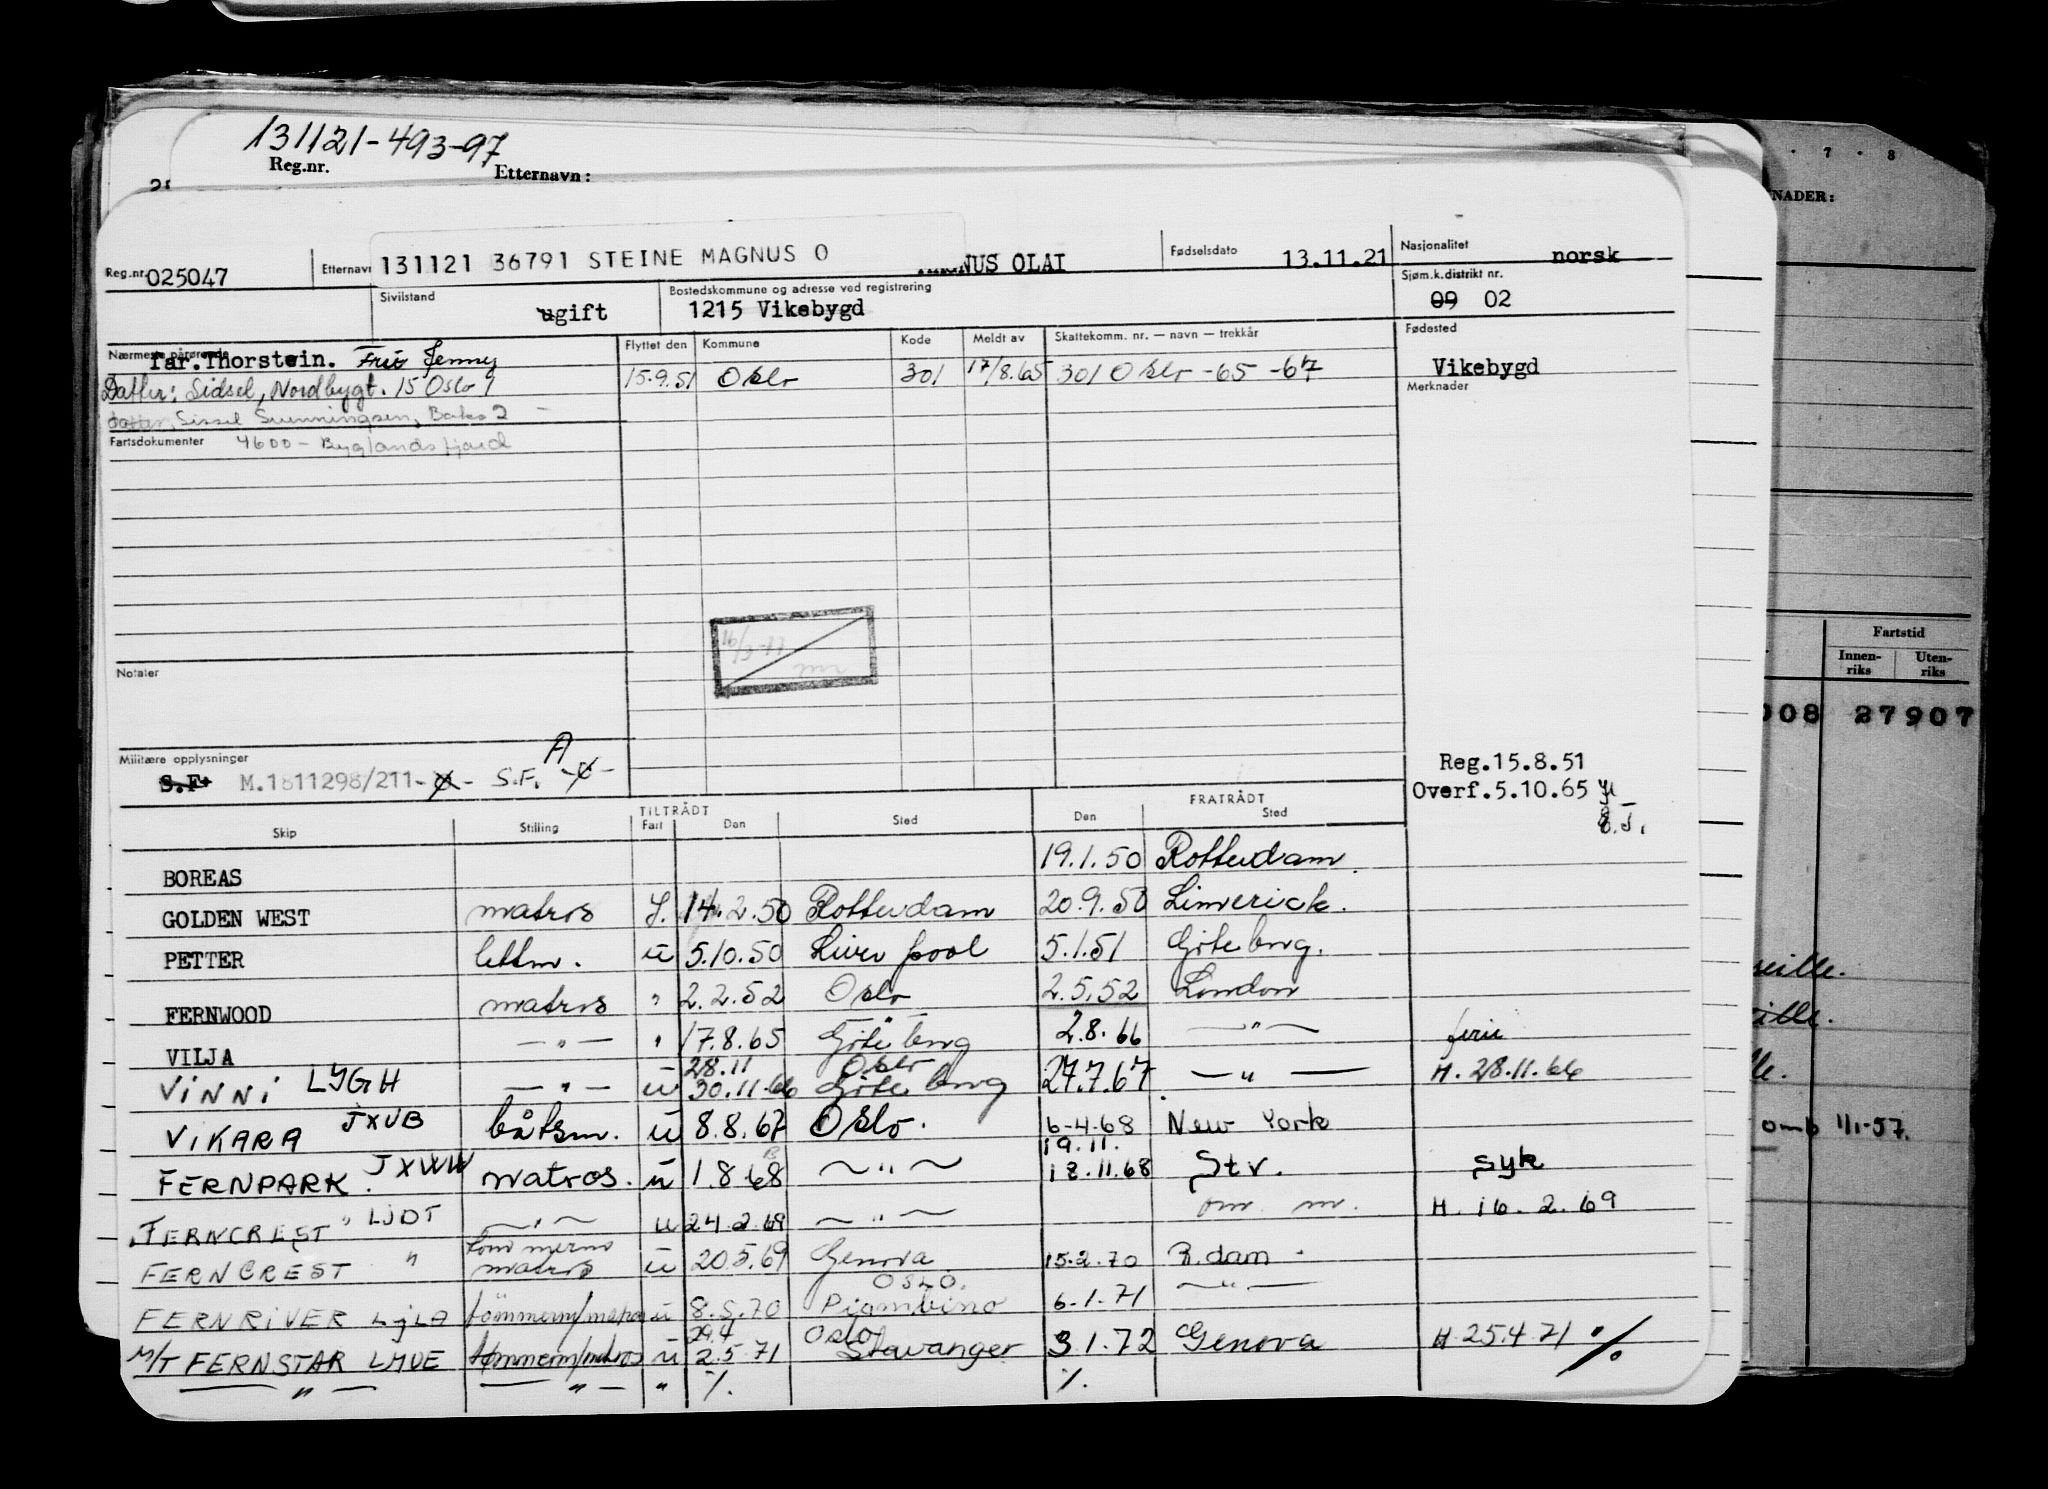 131121-493-97
Reg.nr. Etternavn:
Reg.nr. 025047 Etternavn 131121 36791 STEINE MAGNUS O NUS OLAI Fødselsdato 13.11.21 Nasjonalitet norsk
Sivilstand ugift Bostedskommune og adresse ved registrering 1215 Vikebygd Sjøm.k.distrikt nr. 09 02
Nærmeste pårørende Far.Thorstein. Frue Jenny Flyttet den Kommune Kode Meldt av Skattekomm. nr. — navn — trekkår Fødested Vikebygd
Datter: Sidsel, Nordbygt. 15 Oslo 9 15.9.51 Oslo 301 17/8.65 301 Oslo -65 -67 Merknader
datter, Sissel Bakso 2
Fartsdokumenter 4600 - Byglandsfjord
16/3-77
Notater
Militære opplysninger A
S.F. M.1811298/211- S.F.
Reg.15.8.51
Overf.5.10.65
TILTRÅDT FRATRÅDT
Skip Stilling Fart Den Sted Den Sted
BOREAS 19.1.50 Rotterdam.
GOLDEN WEST matros 14.2.50 Rotterdam 20.9.50 Limerick.
PETTER lettm. u 5.10.50 Liverpool 5.1.51 Göteborg.
FERNWOOD matros " 2.2.52 Oslo 2.5.52 London
VILJA — " — " 17.8.65 Göteborg 2.8.66 — " — ferie
28.11 Oslo
VINNI LJGH — " — u 30.11.66 Göteborg 27.7.67 — " — H. 28.11.66
VIKARA JXUB båtsm. u 8.8.67 Oslo. 6-4-68 New York
19.11.
FERNPARK JXWW matros. u 1.8.68 — " — 18.11.68 Stv. syk
FERNCREST " LJDT — " — u 24.2.69 — " — om. m. H. 16.2.69
FERNCREST " tømmerm matros u 20.5.69 Genova 15.2.70 R.dam -
OSLO.
FERNRIVER LJLA tømmerm/matros u 8.5.70 Piombino 6.1.71 — " —
29.4 Oslo
M/T FERNSTAR LMUE tømmerm/matros u 2.5.71 Stavanger 3.1.72 Genova H 25.4.71 %
— " — — " — " %. %.
NADER:
Fartstid
Innen-riks Uten-riks
008 27907
omb 1/1-57.